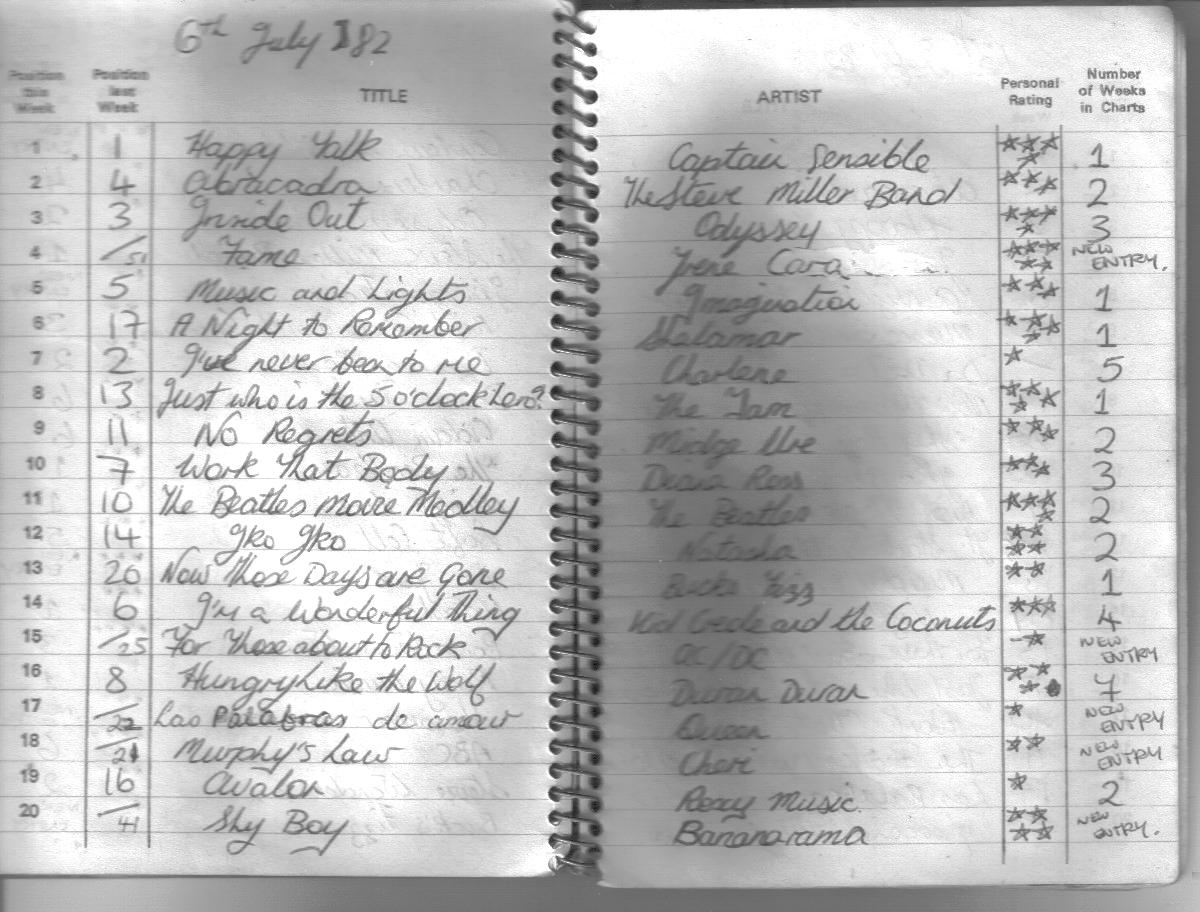 6th July 182
Position this Week Position last Week TITLE ARTIST Personal Rating Number of Weeks in Charts
1 1 Happy Talk Captain Sensible **** 1
2 4 Abracadra The Steve Miller Band *** 2
3 3 Inside Out Odyssey **** 3
4 /51 Fame Irene Cara ***** NEW ENTRY.
5 5 Music and Lights Imagination *** 1
6 17 A Night to Remember Shalamar **** 1
7 2 I've never been to me Charlene * 5
8 13 Just who is the 5 o'clock hero? The Jam **** 1
9 11 No Regrets Midge Ure *** 2
10 7 Work That Body Diana Ross *** 3
11 10 The Beatles movie Medley The Beatles **** 2
12 14 Iko Iko Natasha **** 2
13 26 Now Those Days are Gone Bucks Fizz ** 1
14 6 I'm a Wonderful Thing Kid Creole and the Coconuts *** 4
15 /25 For Those about to Rock AC/DC * NEW ENTRY
16 8 Hungry Like the Wolf Duran Duran *** 7
17 /22 Las Palabras de amour Queen * NEW ENTRY
18 /21 Murphy's Law Cheri ** NEW ENTRY
19 16 Avalon Roxy Music. * 2
20 /41 Shy Boy Bananarama **** NEW ENTRY.